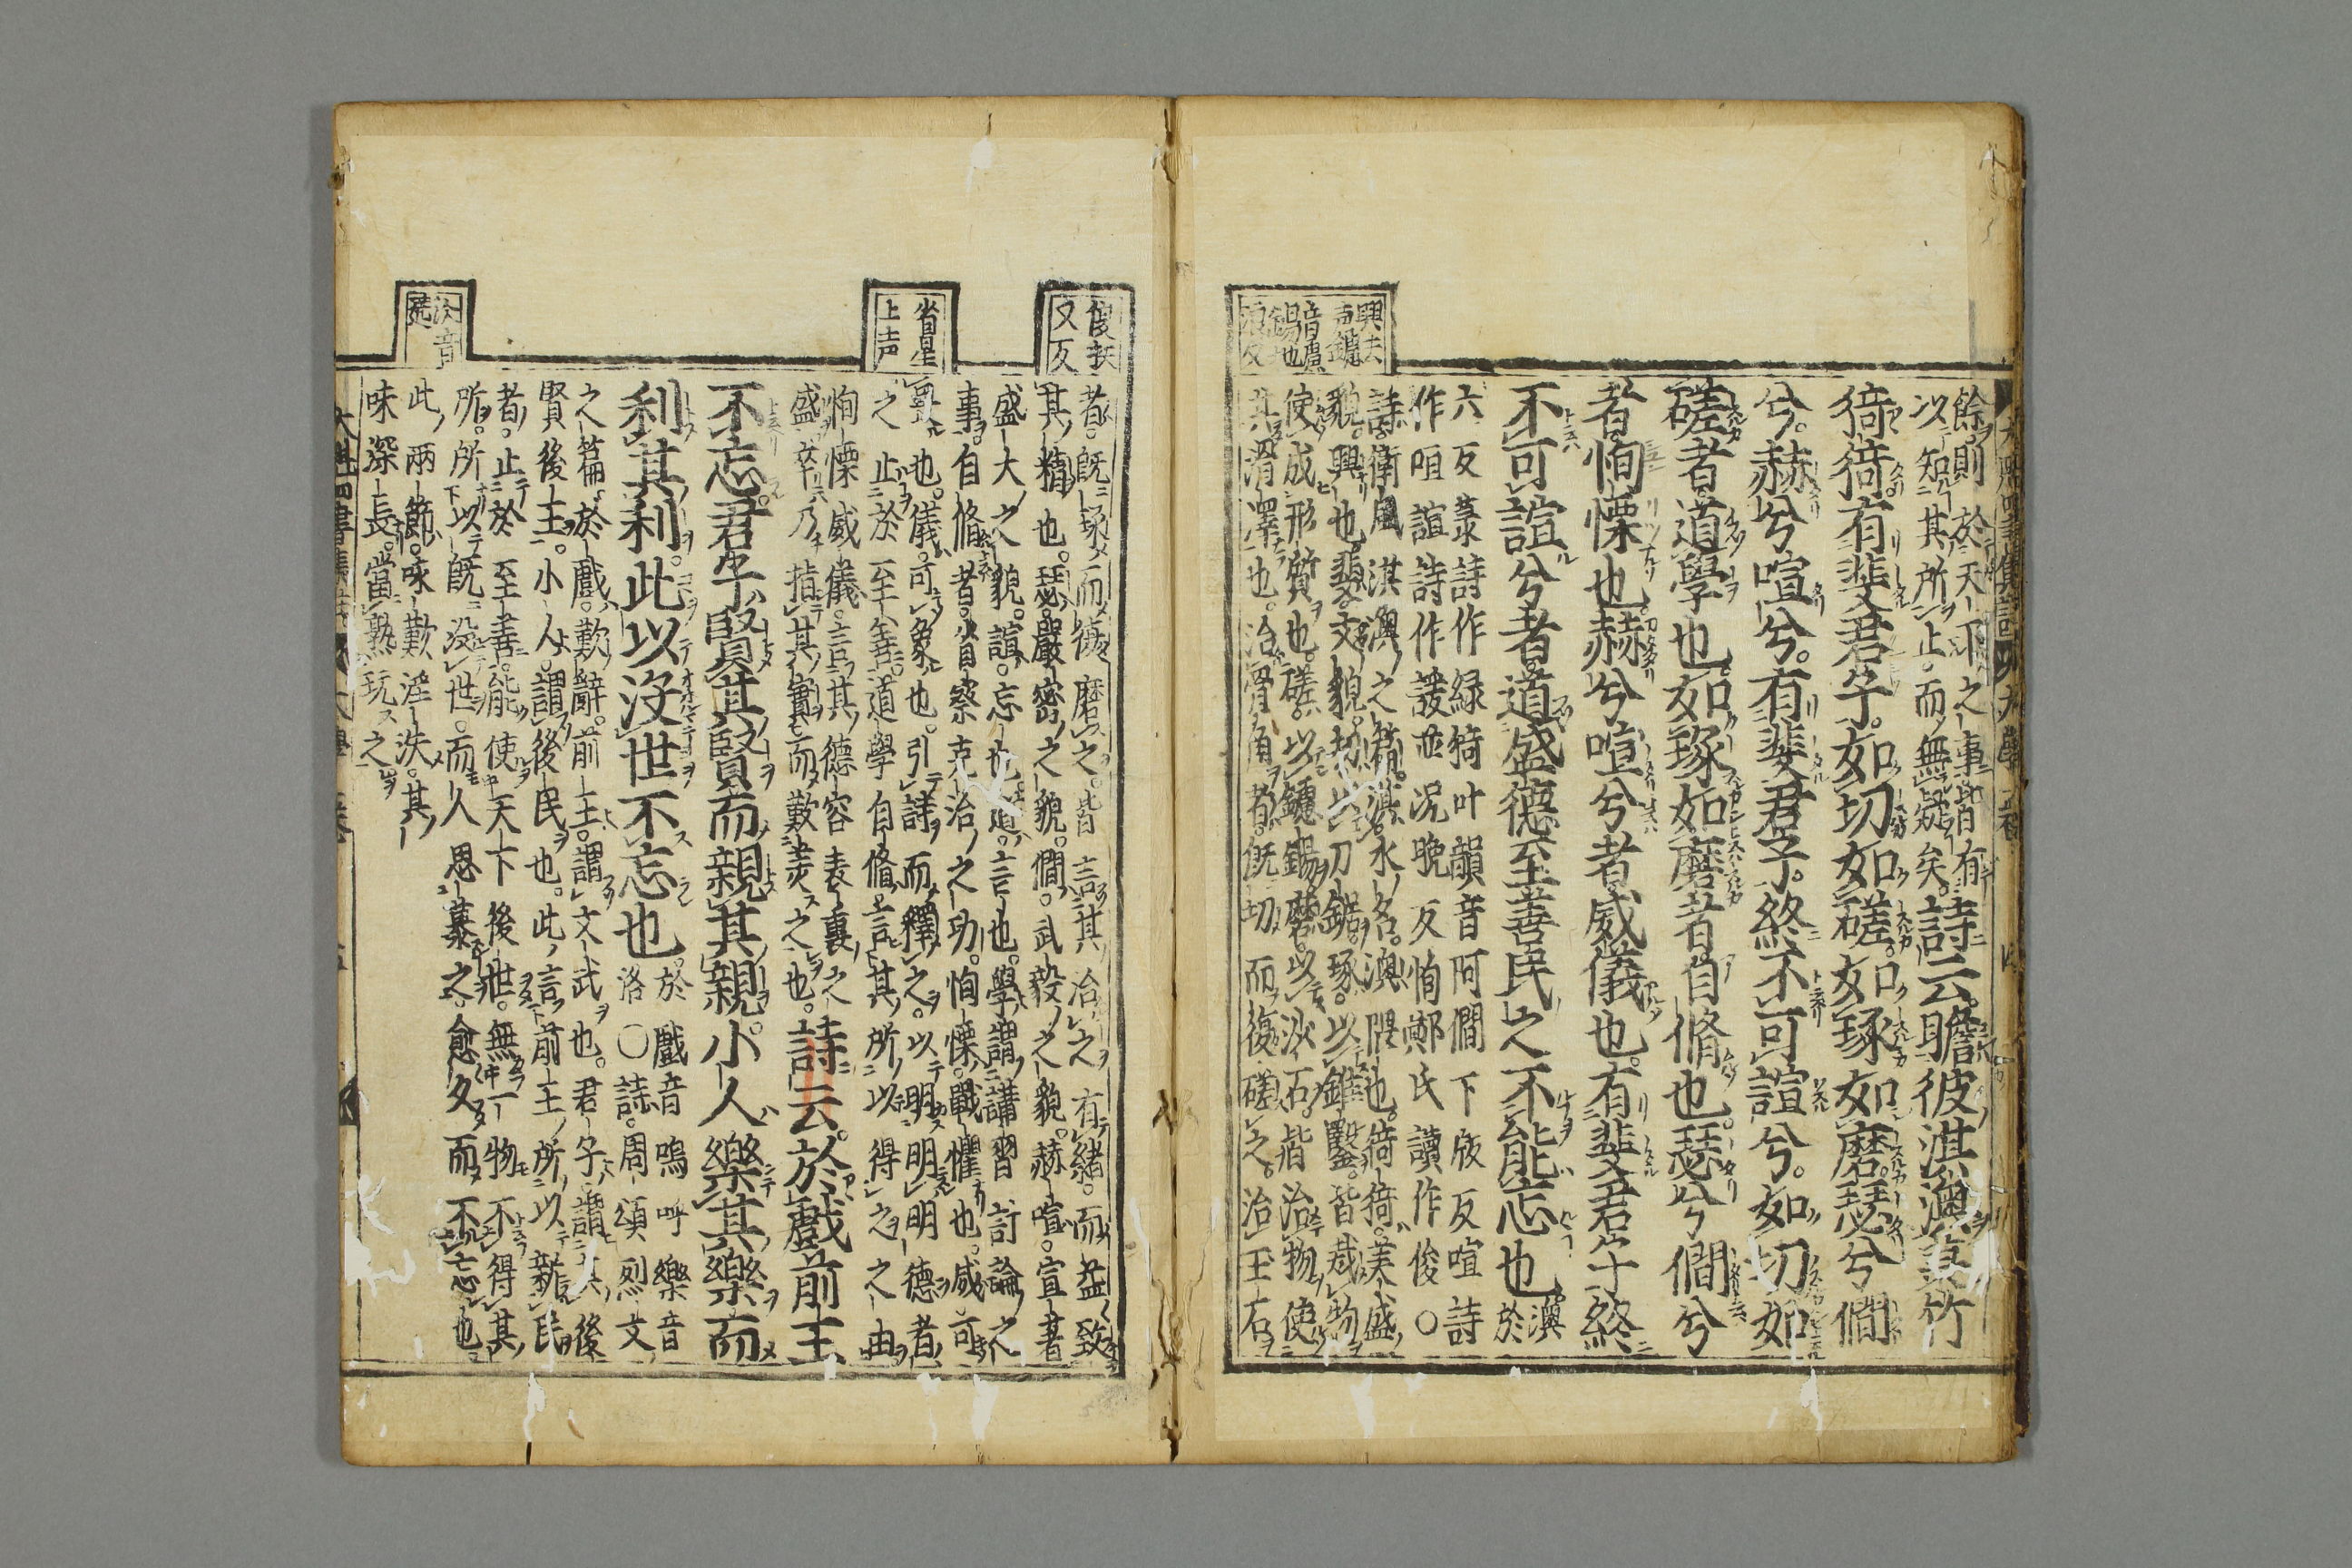 餘則於天下之事皆有
以知其所止而無疑矣詩云瞻彼淇澳菉竹
猗猗有斐君子如切如磋如琢如磨瑟兮僩
兮赫兮喧兮有斐君子終不可諠兮如切如
磋者道學也如琢如磨者自脩也瑟兮僩兮
者恂慄也赫兮喧兮者威儀也有斐君子終
不可諠兮者道盛德至善民之不能忘也澳
於
六反菉詩作緑猗叶韻音阿僩下版反喧詩
作咺諠詩作諼並況晩反恂鄭氏讀作俊○
詩衛風淇澳之篇淇水名澳隈也猗猗美盛
貌興也斐文貌切以刀鋸琢以錐鑿皆裁物
使成形質也磋以鑢鐋磨以沙石皆治物使
其滑澤也治骨角者既切而復磋之治玉石
興去
声鑢
音慮
鐋他
浪反
者既琢而復磨之皆言其治之有緒而益致
其精也瑟嚴密之貌僩武毅之貌赫喧宣著
盛大之貌諠忘也道言也學謂講習討論之
事自脩者省察克治之功恂慄戰懼也威可
畏也儀可象也引詩而釋之以明明明德者
之止於至善道學自脩言其所以得之之由
恂慄威儀言其德容表裏之
盛卒乃指其實而歎美之也詩云於戲前王
不忘君子賢其賢而親其親小人樂其樂而
利其利此以沒世不忘也於戲音嗚呼樂音
洛○詩周頌烈文
之篇於戲歎辭前王謂文武也君子謂其後
賢後王小人謂後民也此言前王所以新民
者止於至善能使天下後世無一物不得其
所所以既沒世而人思慕之愈久而不忘也
此兩節咏歎淫泆其
味深長當熟玩之
復扶
又反
省星
上声
泆音